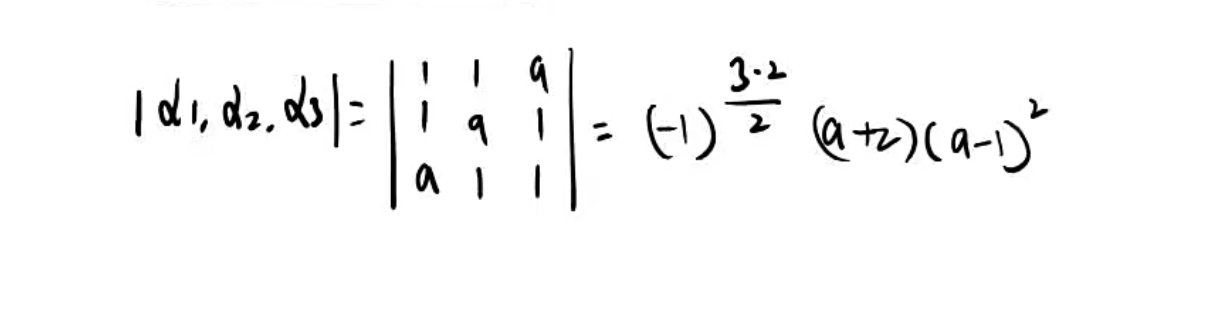 $|\alpha_1, \alpha_2, \alpha_3| = \begin{vmatrix} 1 & 1 & a \\ 1 & a & 1 \\ a & 1 & 1 \end{vmatrix} = (-1)^{\frac{3 \cdot 2}{2}} (a+2)(a-1)^2$